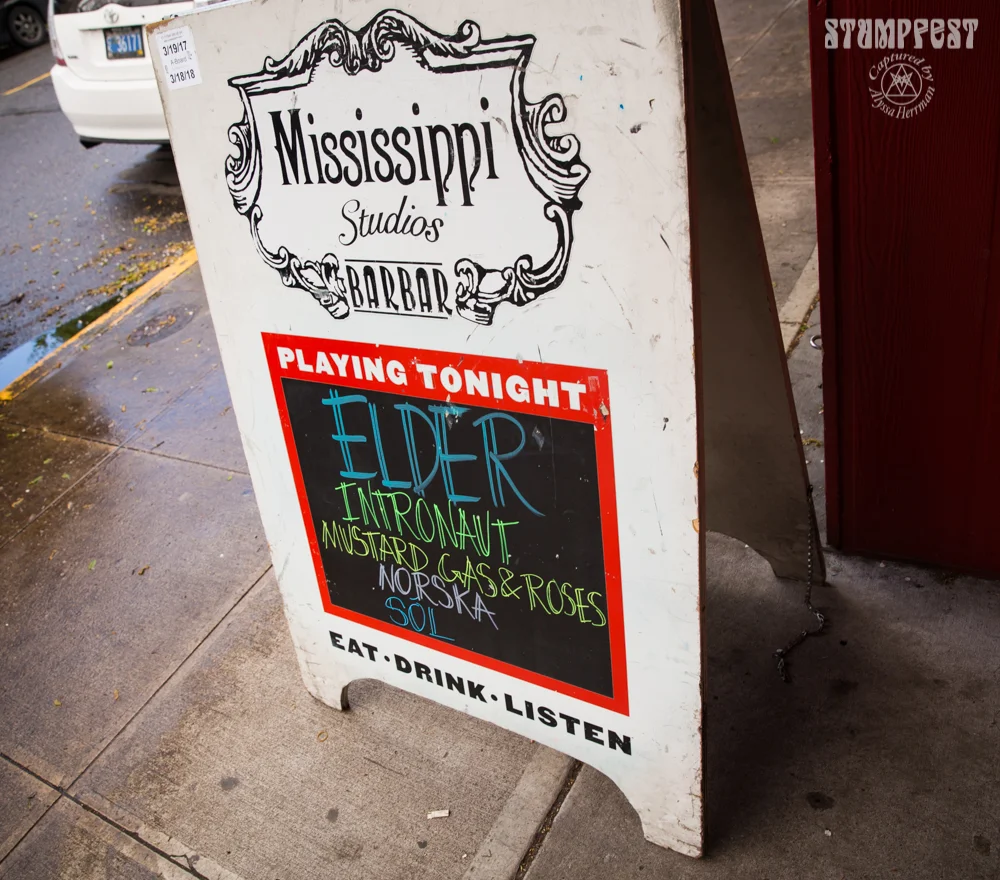 36171
3/19/17
A-Board
3/18/18
STUMPFEST
Captured by
Alyssa Herrman
Mississippi
Studios
BARBAR
PLAYING TONIGHT
ELDER
INTRONAUT
MUSTARD GAS & ROSES
NORSKA
SOL
EAT · DRINK · LISTEN